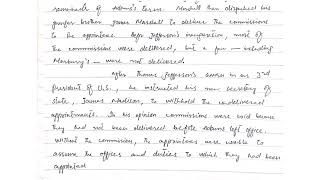 remainder of Adams's term. Marshall then dispatched his
younger brother James Marshall to deliver the commissions
to the appointees. Before Jefferson's inauguration, most of
the commissions were delivered, but a few — including
Marbury's — were not delivered.
After Thomas Jefferson's sworn in as 3rd
president of U.S., he instructed his new secretary of
state, James Madison, to withhold the undelivered
appointments. In his opinion commissions were void because
they had not been delivered before Adams left office.
Without the commission, the appointees were unable to
assume the offices and duties to which they had been
appointed